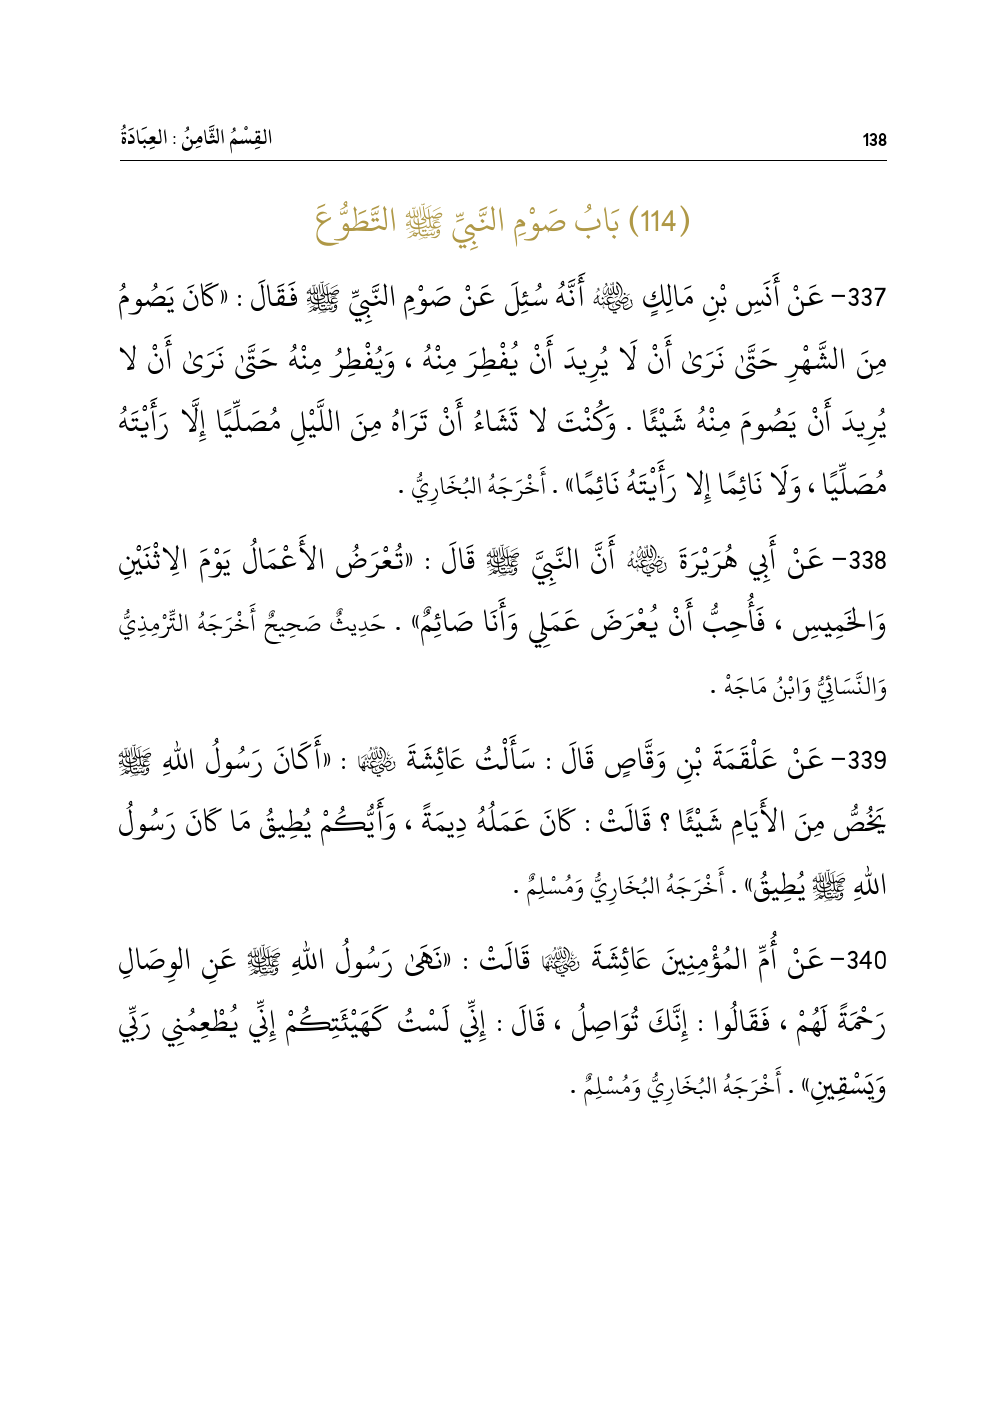 138 القِسْمُ الثَّامِنُ : العِبَادَةُ
(114) بَابُ صَوْمِ النَّبِيِّ ﷺ التَّطَوُّعَ
337- عَنْ أَنَسِ بْنِ مَالِكٍ رَضِيَ اللَّهُ عَنْهُ أَنَّهُ سُئِلَ عَنْ صَوْمِ النَّبِيِّ ﷺ فَقَالَ : «كَانَ يَصُومُ
مِنَ الشَّهْرِ حَتَّىٰ نَرَىٰ أَنْ لَا يُرِيدَ أَنْ يُفْطِرَ مِنْهُ ، وَيُفْطِرُ مِنْهُ حَتَّىٰ نَرَىٰ أَنْ لا
يُرِيدَ أَنْ يَصُومَ مِنْهُ شَيْئًا . وَكُنْتَ لا تَشَاءُ أَنْ تَرَاهُ مِنَ اللَّيْلِ مُصَلِّيًا إِلَّا رَأَيْتَهُ
مُصَلِّيًا ، وَلَا نَائِمًا إِلا رَأَيْتَهُ نَائِمًا» . أَخْرَجَهُ البُخَارِيُّ .
338- عَنْ أَبِي هُرَيْرَةَ رَضِيَ اللَّهُ عَنْهُ أَنَّ النَّبِيَّ ﷺ قَالَ : «تُعْرَضُ الأَعْمَالُ يَوْمَ الِاثْنَيْنِ
وَالخَمِيسِ ، فَأُحِبُّ أَنْ يُعْرَضَ عَمَلِي وَأَنَا صَائِمٌ» . حَدِيثٌ صَحِيحٌ أَخْرَجَهُ التِّرْمِذِيُّ
وَالنَّسَائِيُّ وَابْنُ مَاجَهْ .
339- عَنْ عَلْقَمَةَ بْنِ وَقَّاصٍ قَالَ : سَأَلْتُ عَائِشَةَ رَضِيَ اللَّهُ عَنْهَا : «أَكَانَ رَسُولُ اللهِ ﷺ
يَخُصُّ مِنَ الأَيَامِ شَيْئًا ؟ قَالَتْ : كَانَ عَمَلُهُ دِيمَةً ، وَأَيُّكُمْ يُطِيقُ مَا كَانَ رَسُولُ
اللهِ ﷺ يُطِيقُ» . أَخْرَجَهُ البُخَارِيُّ وَمُسْلِمٌ .
340- عَنْ أُمِّ المُؤْمِنِينَ عَائِشَةَ رَضِيَ اللَّهُ عَنْهَا قَالَتْ : «نَهَىٰ رَسُولُ اللهِ ﷺ عَنِ الوِصَالِ
رَحْمَةً لَهُمْ ، فَقَالُوا : إِنَّكَ تُوَاصِلُ ، قَالَ : إِنِّي لَسْتُ كَهَيْئَتِكُمْ إِنِّي يُطْعِمُنِي رَبِّي
وَيَسْقِينِ» . أَخْرَجَهُ البُخَارِيُّ وَمُسْلِمٌ .